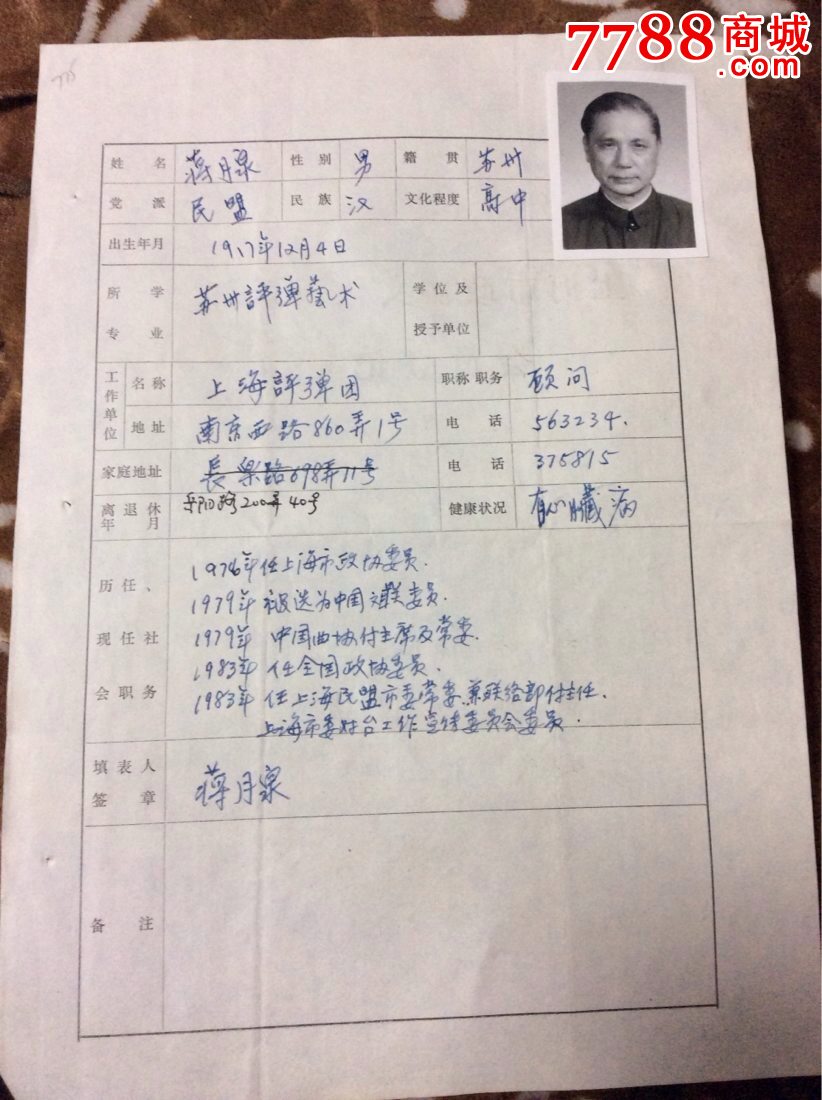 7788商城
.com
姓名 蒋月泉 性别 男 籍贯 苏州
党派 民盟 民族 汉 文化程度 高中
出生年月 1917年12月4日
所学专业 苏州評弹藝术 学位及授予单位
工作单位 名称 上海評弹团 职称职务 顾问
地址 南京西路860弄1号 电话 563234.
家庭地址 長樂路698弄11号 电话 375815
离退休年月 岳阳路200弄40号 健康状况 有心臟病
历任、现任社会职务
1976年任上海市政协委员.
1979年 被选为中国文联委员.
1979年 中国曲协付主席及常委.
1983年 任全国政协委员.
1983年 任上海民盟市委常委兼联络部付主任.
上海市委对台工作宣传委员会委员.
填表人签章 蒋月泉
备注